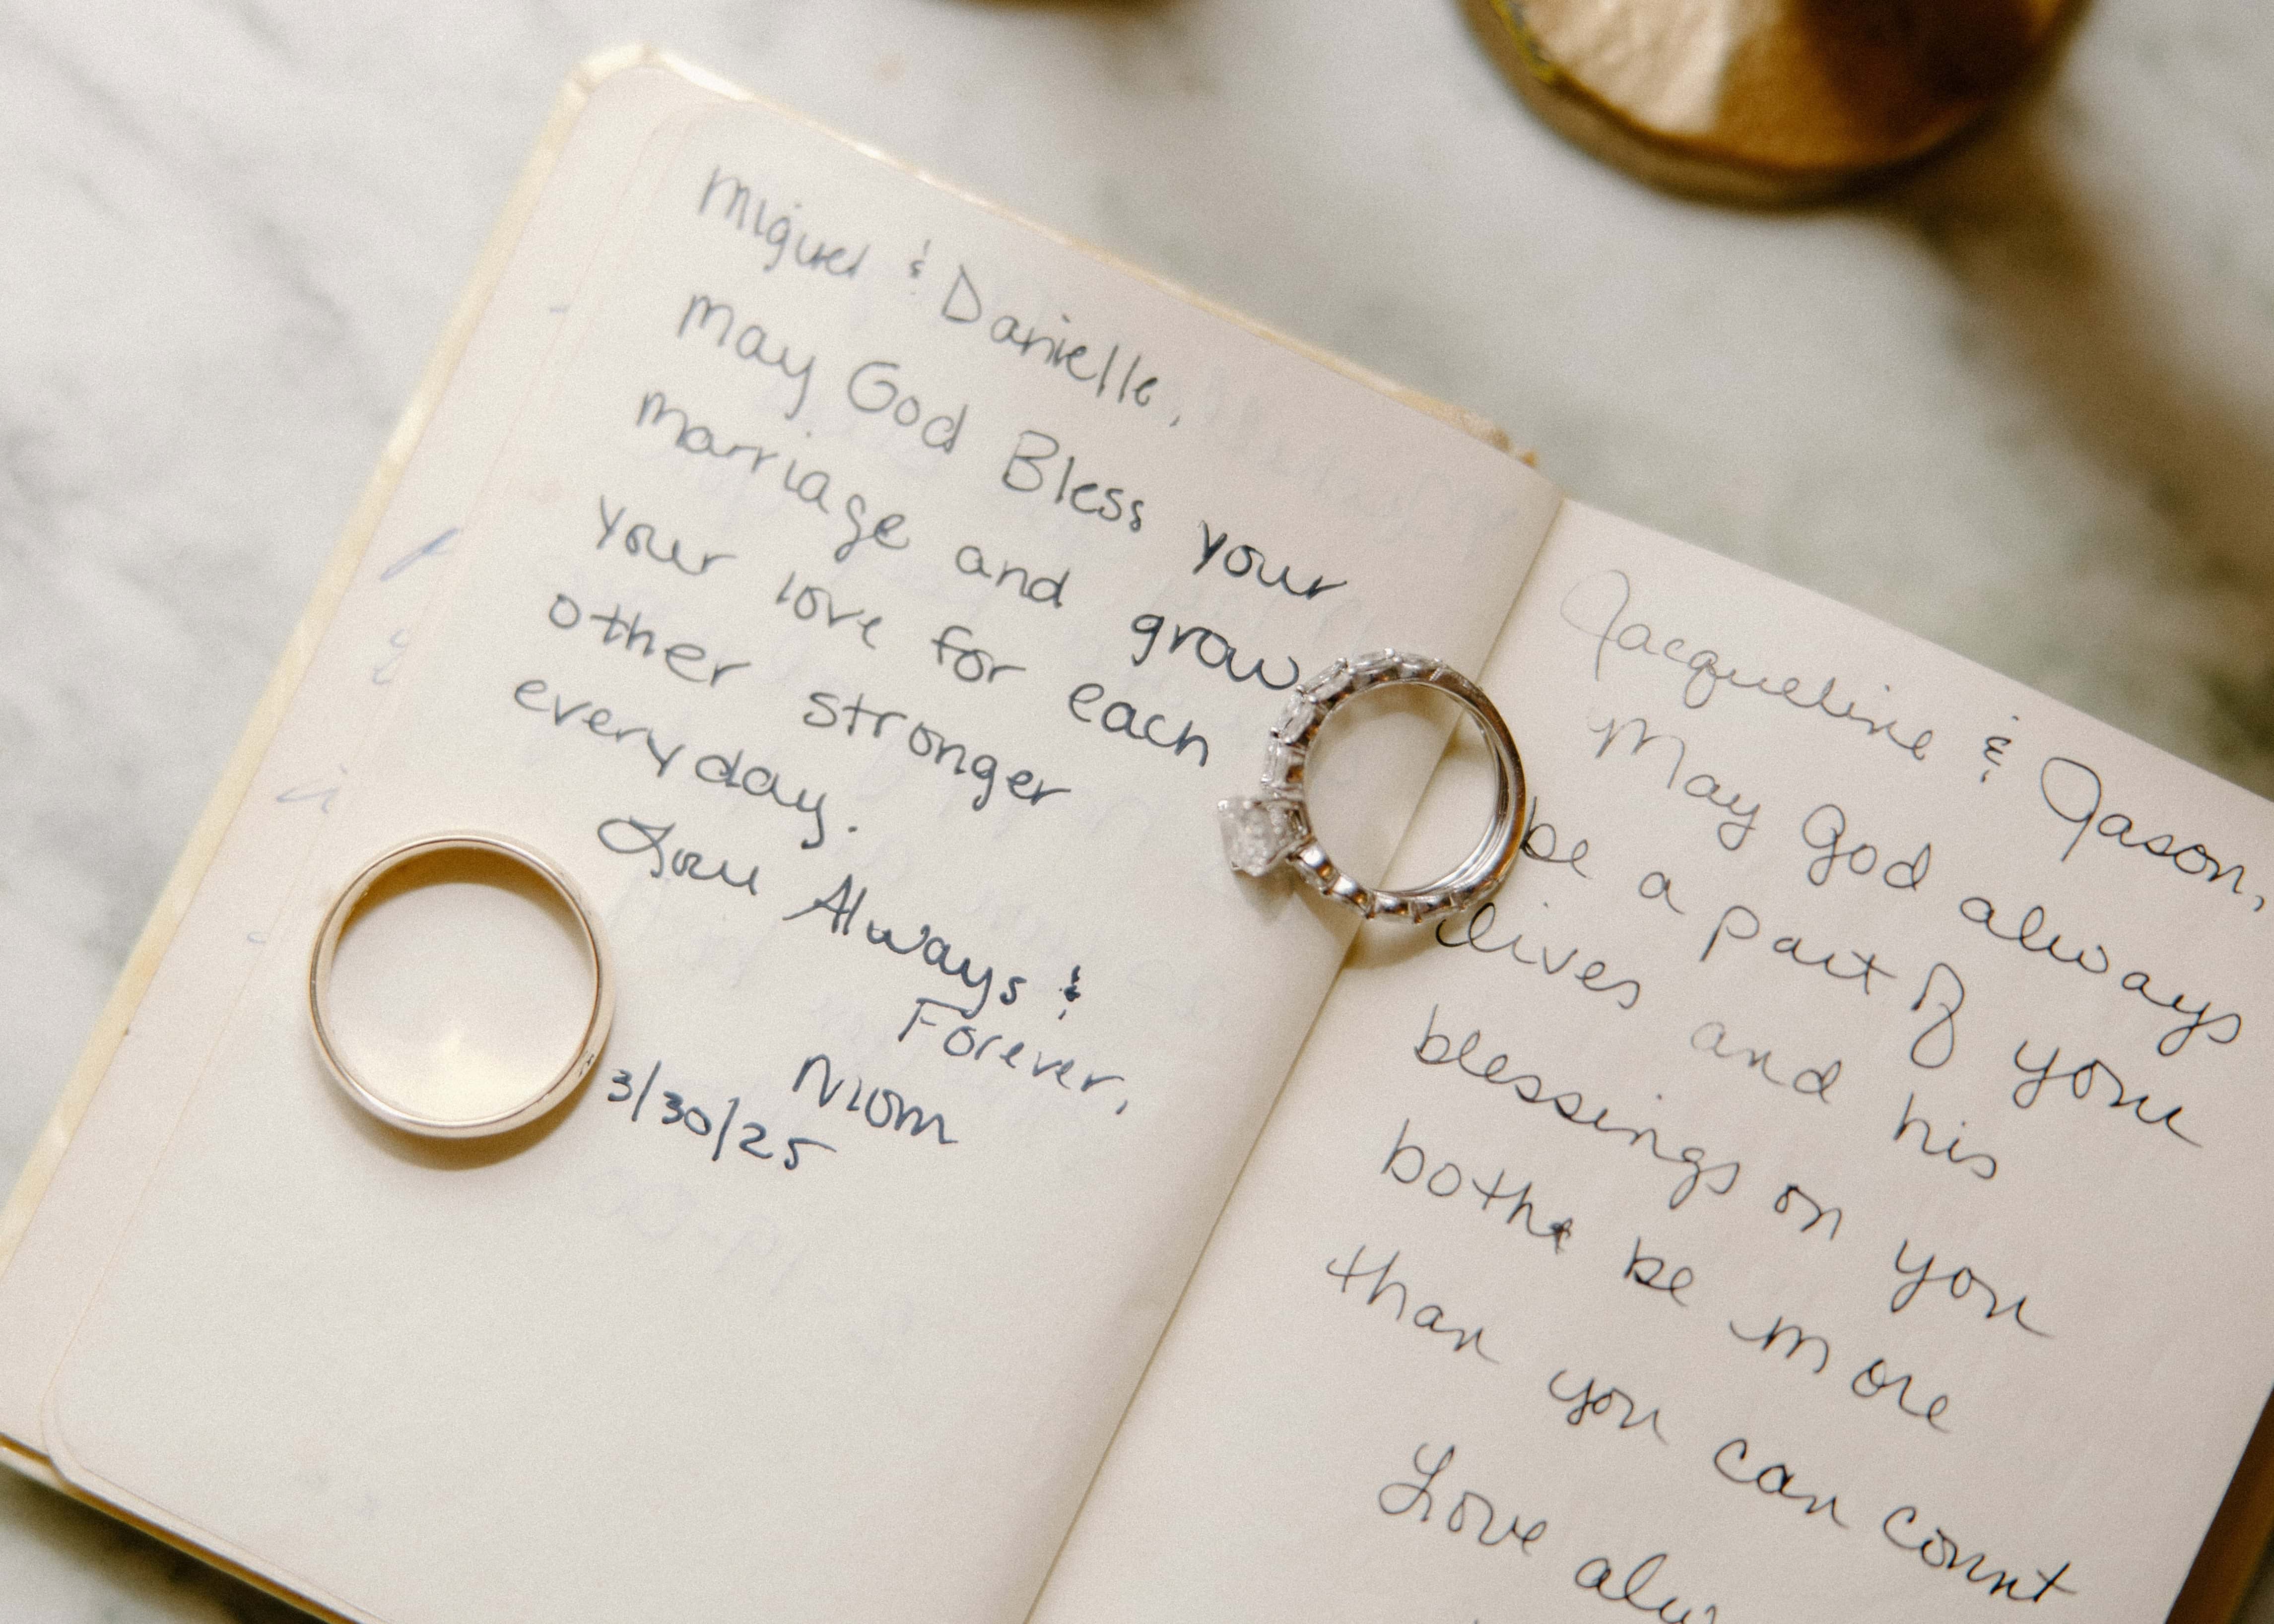 Miguel & Danielle,
May God Bless your
marriage and grow
your love for each
other stronger
everyday.
Love Always &
Forever,
Mom
3/30/25
Jacqueline & Jason,
May God always
be a part of your
lives and his
blessings on you
bothe be more
than you can count
Love